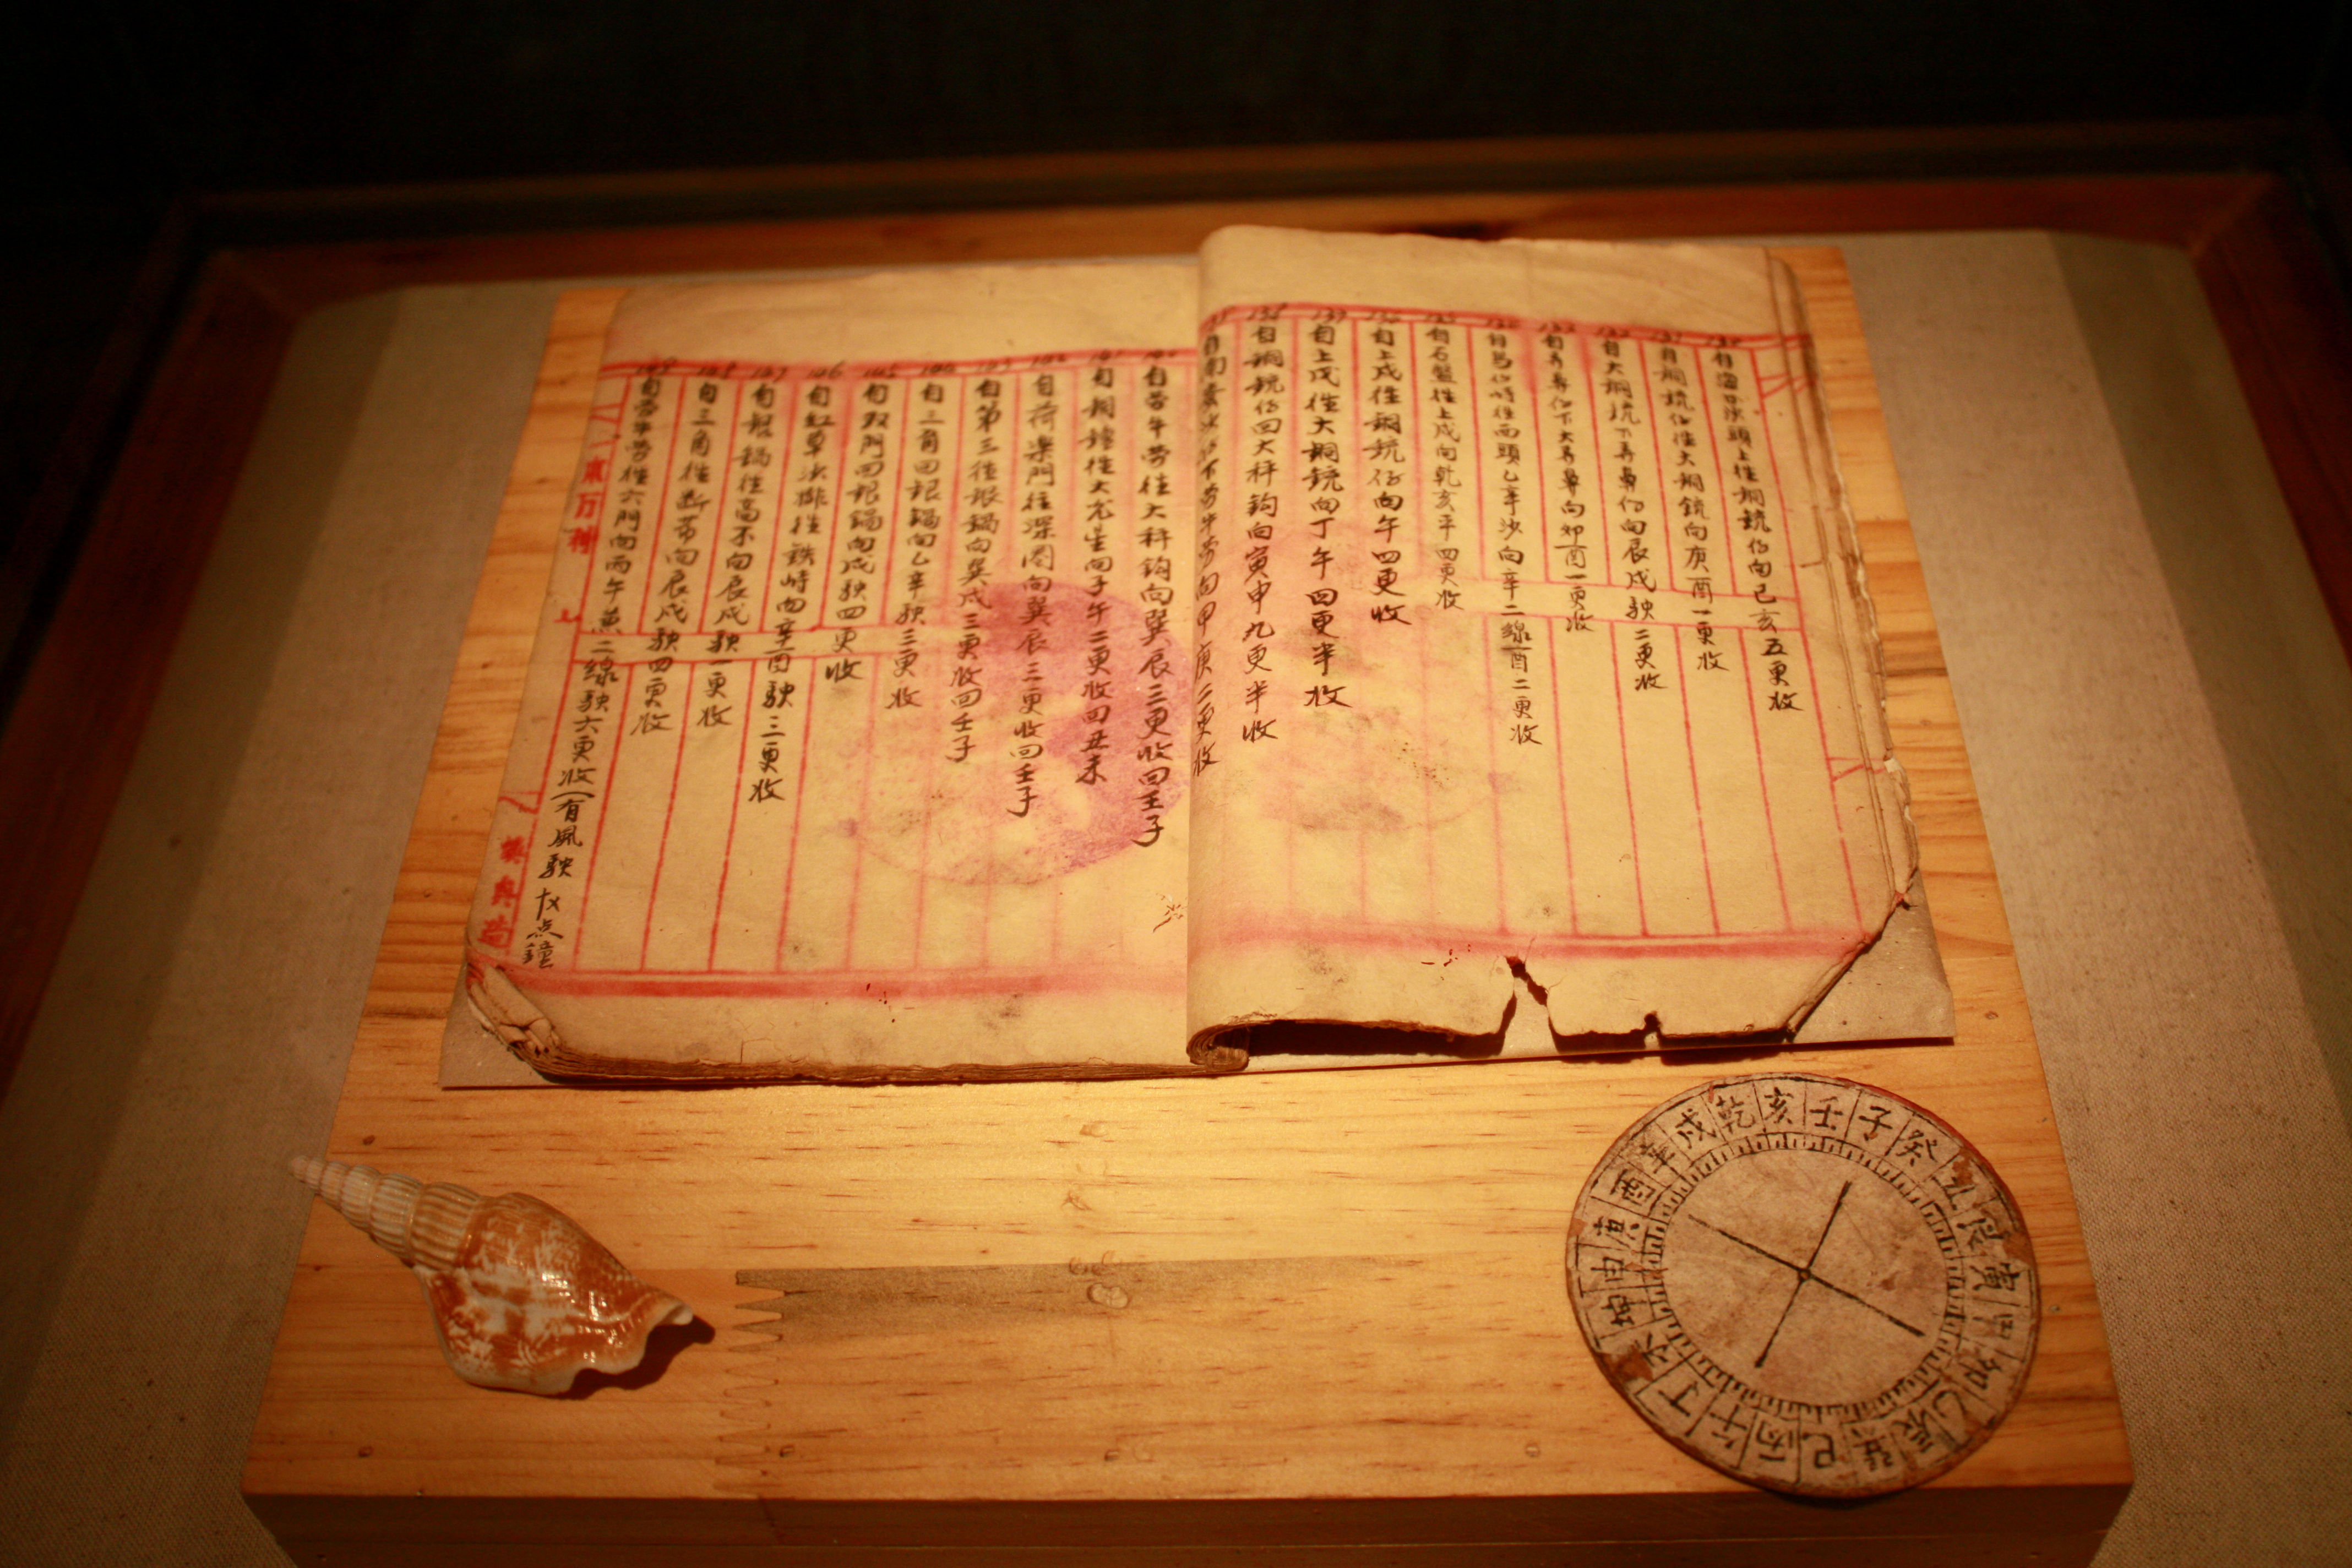 自海口沙頭上往銅銃仔向巳亥五更收
131 自銅銃仔往大銅銃向庚酉一更收
132 自大銅銃下弄鼻仔向辰戌駛二更收
133 自弄鼻仔下大弄鼻向卯酉一更收
自鳥仔峙往西頭乙辛沙向辛二線酉二更收
自石盤往上戊向乾亥平四更收
自上戊往銅銃仔向午四更收
137 自上戊往大銅銃向丁午四更半收
138 自銅銃仔回大秤鈎向寅申九更半收
自南乘沙仔下劳牛劳向甲庚二更收
自劳牛劳往大秤鈎向巽辰三更收回壬子
141 自銅鐘往大光星向子午二更收回丑未
自荷楽門往深圈向巽辰三更收回壬子
143 自第三往銀鍋向巽戌三更收回壬子
144 自三角回銀鍋向乙辛駛三更收
145 自双門回銀鍋向戌駛四更收
146 自紅草沙排往鉄峙向辛酉駛三更收
147 自銀鍋往高不向辰戌駛一更收
148 自三角往断节向辰戌駛四更收
149 自劳牛劳往六門向丙午兼二線駛六更收(有風駛十乂点鐘
子癸丑艮寅甲卯乙辰巽巳丙午丁未坤申庚酉辛戌乾亥壬